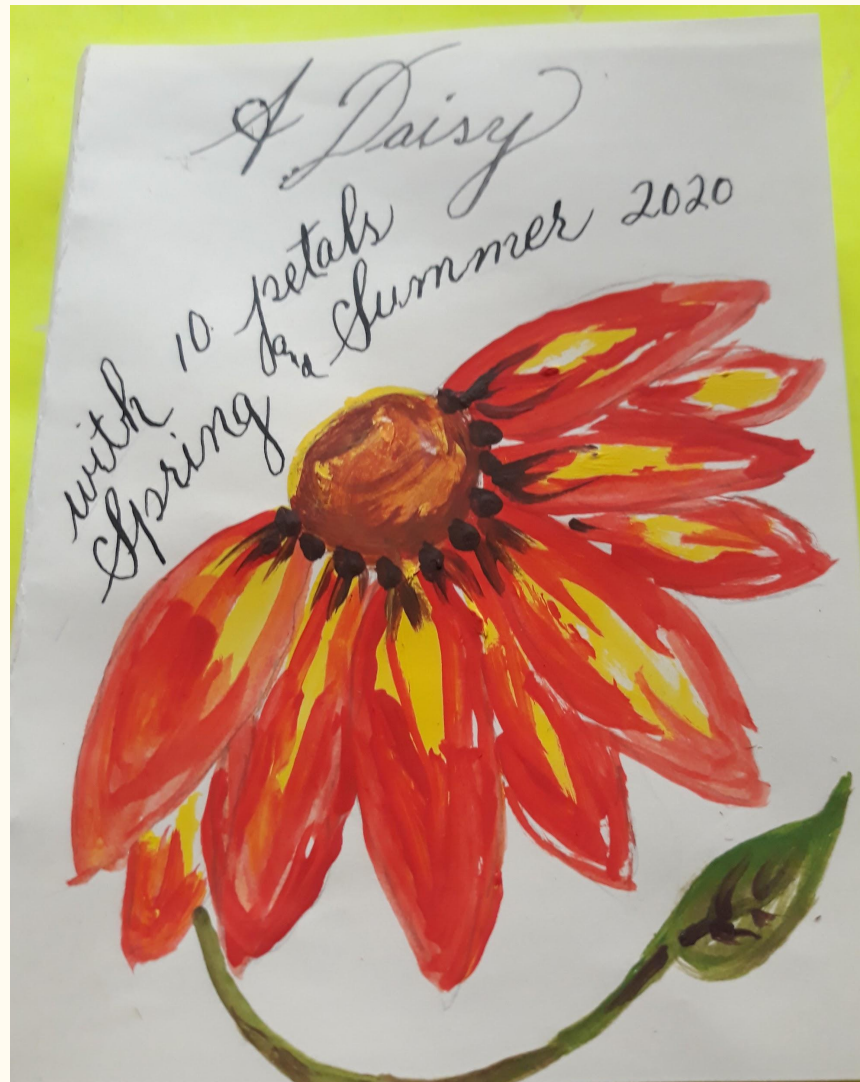 A Daisy
with 10 petals
Spring and Summer 2020